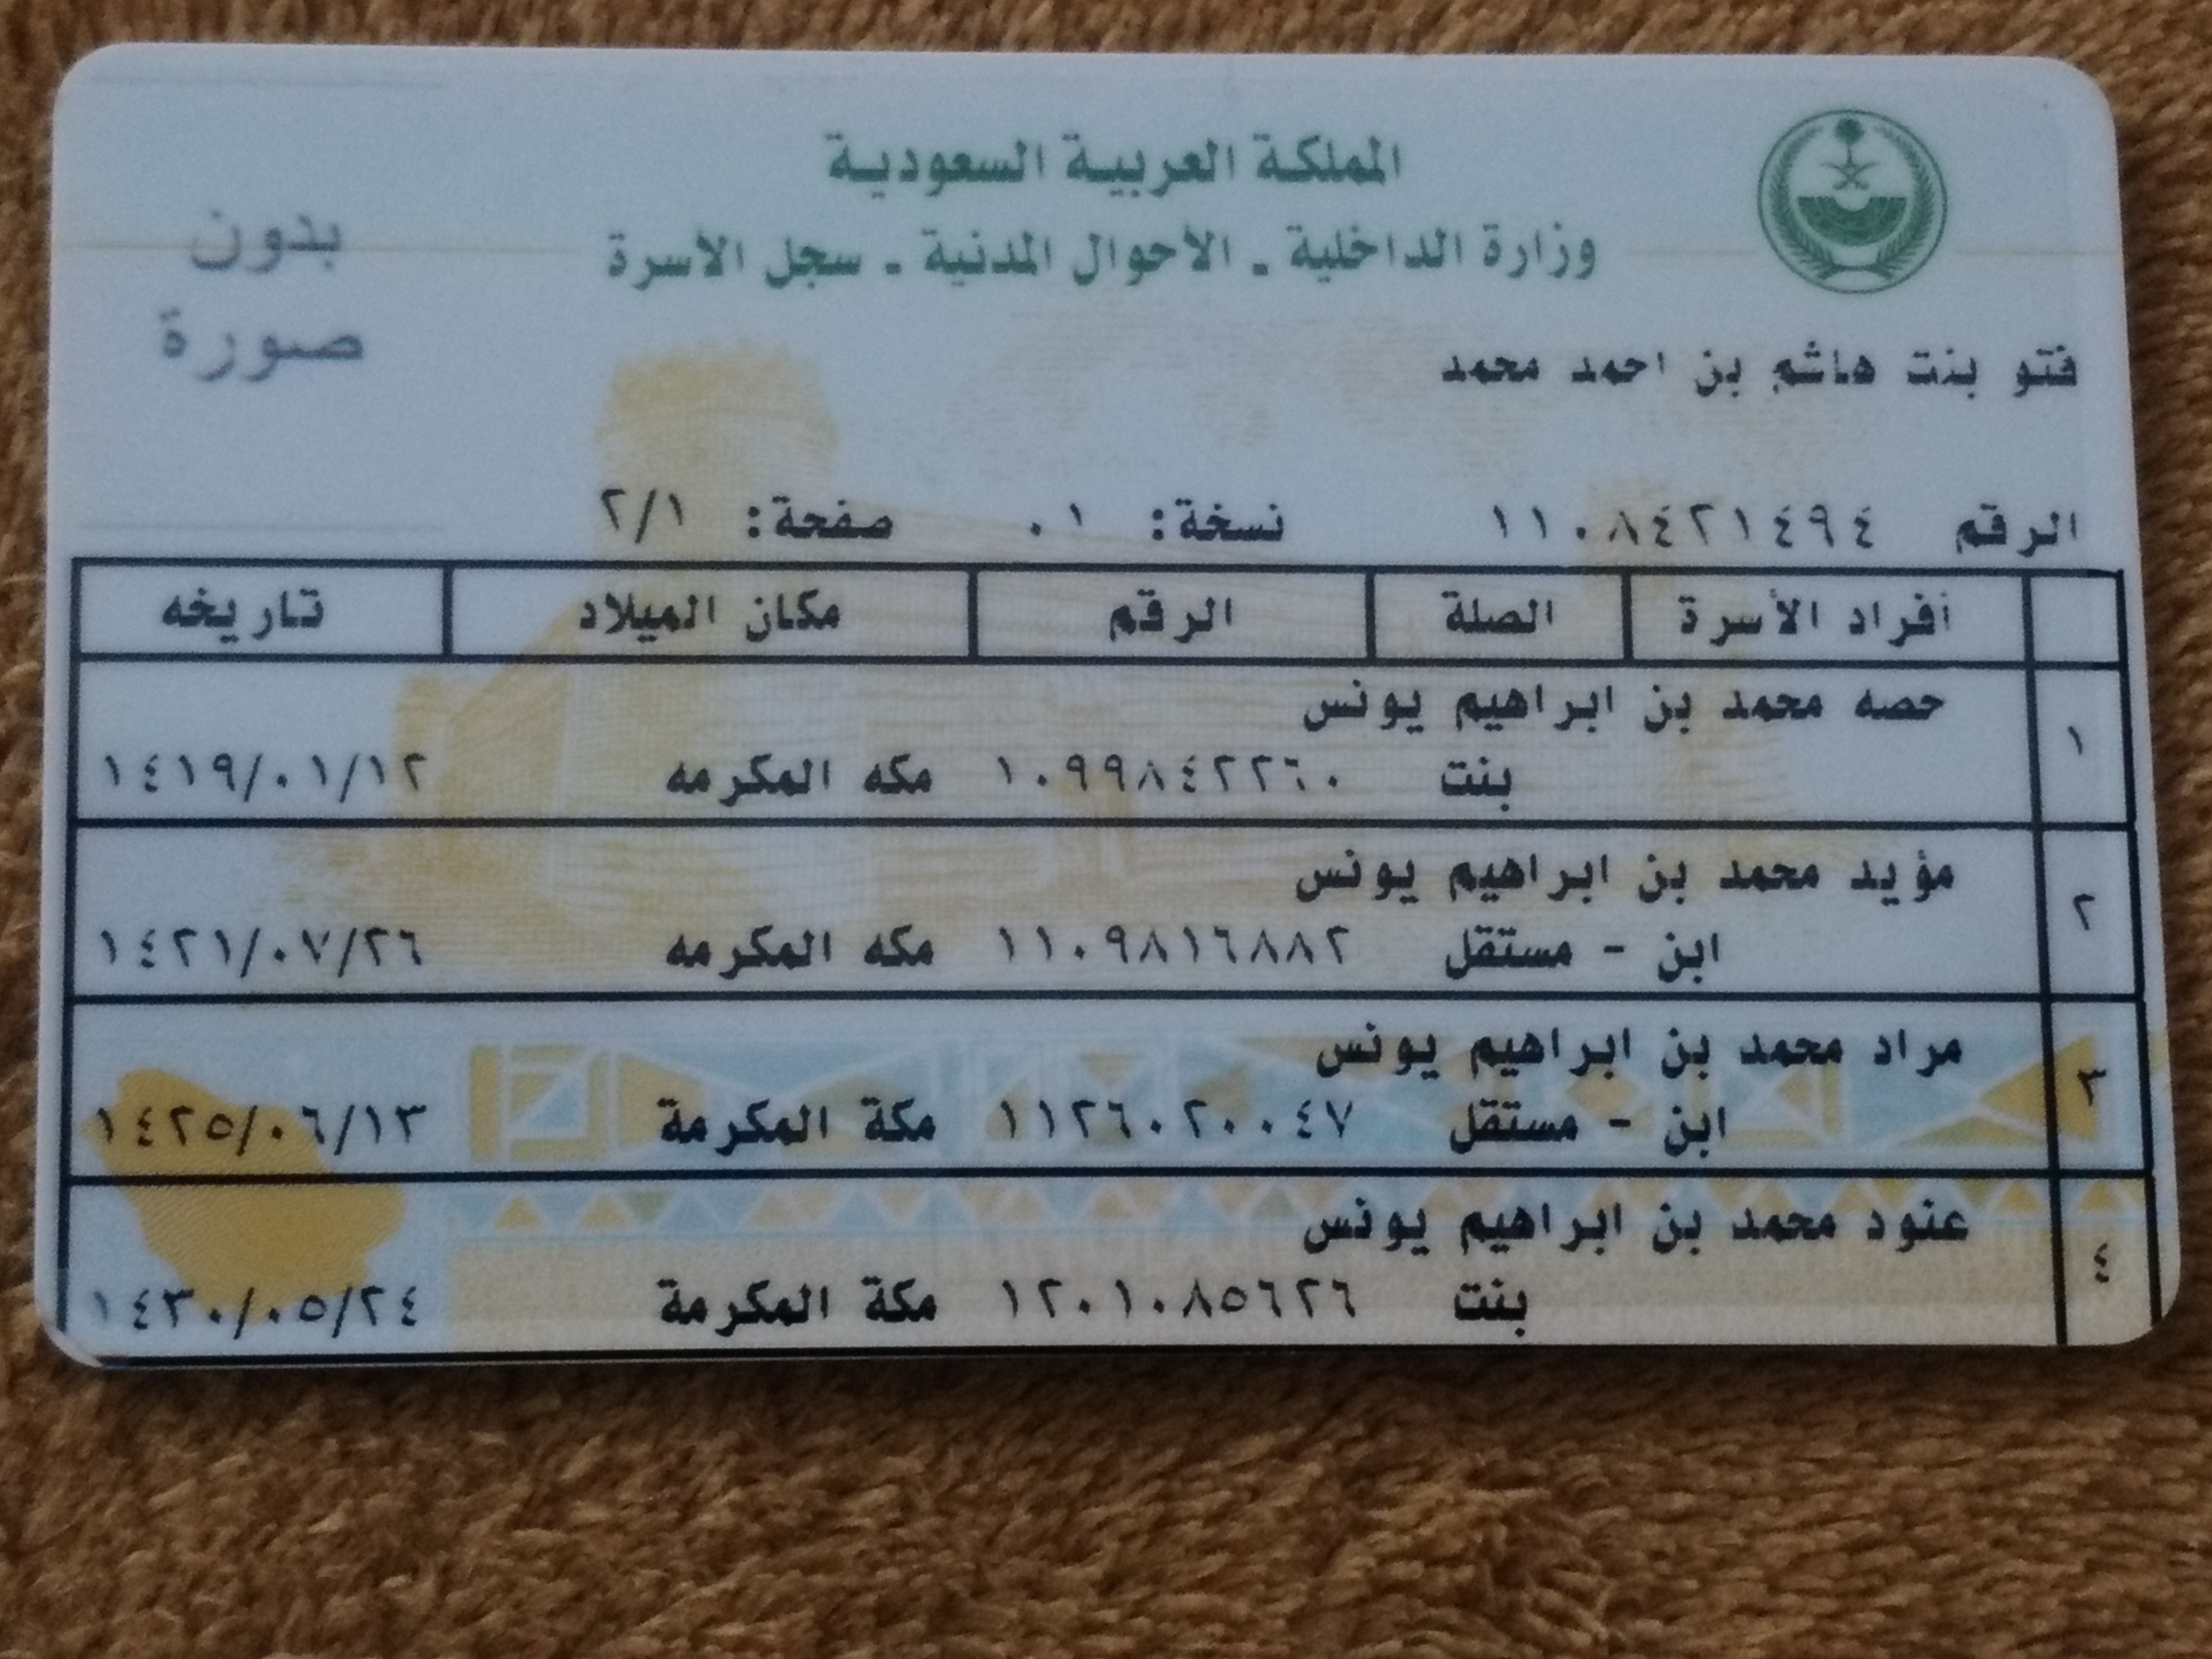 المملكة العربية السعودية
وزارة الداخلية - الأحوال المدنية - سجل الأسرة
بدون
صورة
فتو بنت هاشم بن احمد محمد
الرقم ١١٠٨٤٢١٤٩٤ نسخة: ٠١ صفحة: ٢/١
أفراد الأسرة الصلة الرقم مكان الميلاد تاريخه
١ حصه محمد بن ابراهيم يونس
بنت ١٠٩٩٨٤٢٢٦٠ مكه المكرمه ١٤١٩/٠١/١٢
٢ مؤيد محمد بن ابراهيم يونس
ابن - مستقل ١١٠٩٨١٦٨٨٢ مكه المكرمه ١٤٢١/٠٧/٢٦
٣ مراد محمد بن ابراهيم يونس
ابن - مستقل ١١٢٦٠٢٠٠٤٧ مكة المكرمة ١٤٢٥/٠٦/١٣
٤ عنود محمد بن ابراهيم يونس
بنت ١٢٠١٠٨٥٦٢٦ مكة المكرمة ١٤٣٠/٠٥/٢٤